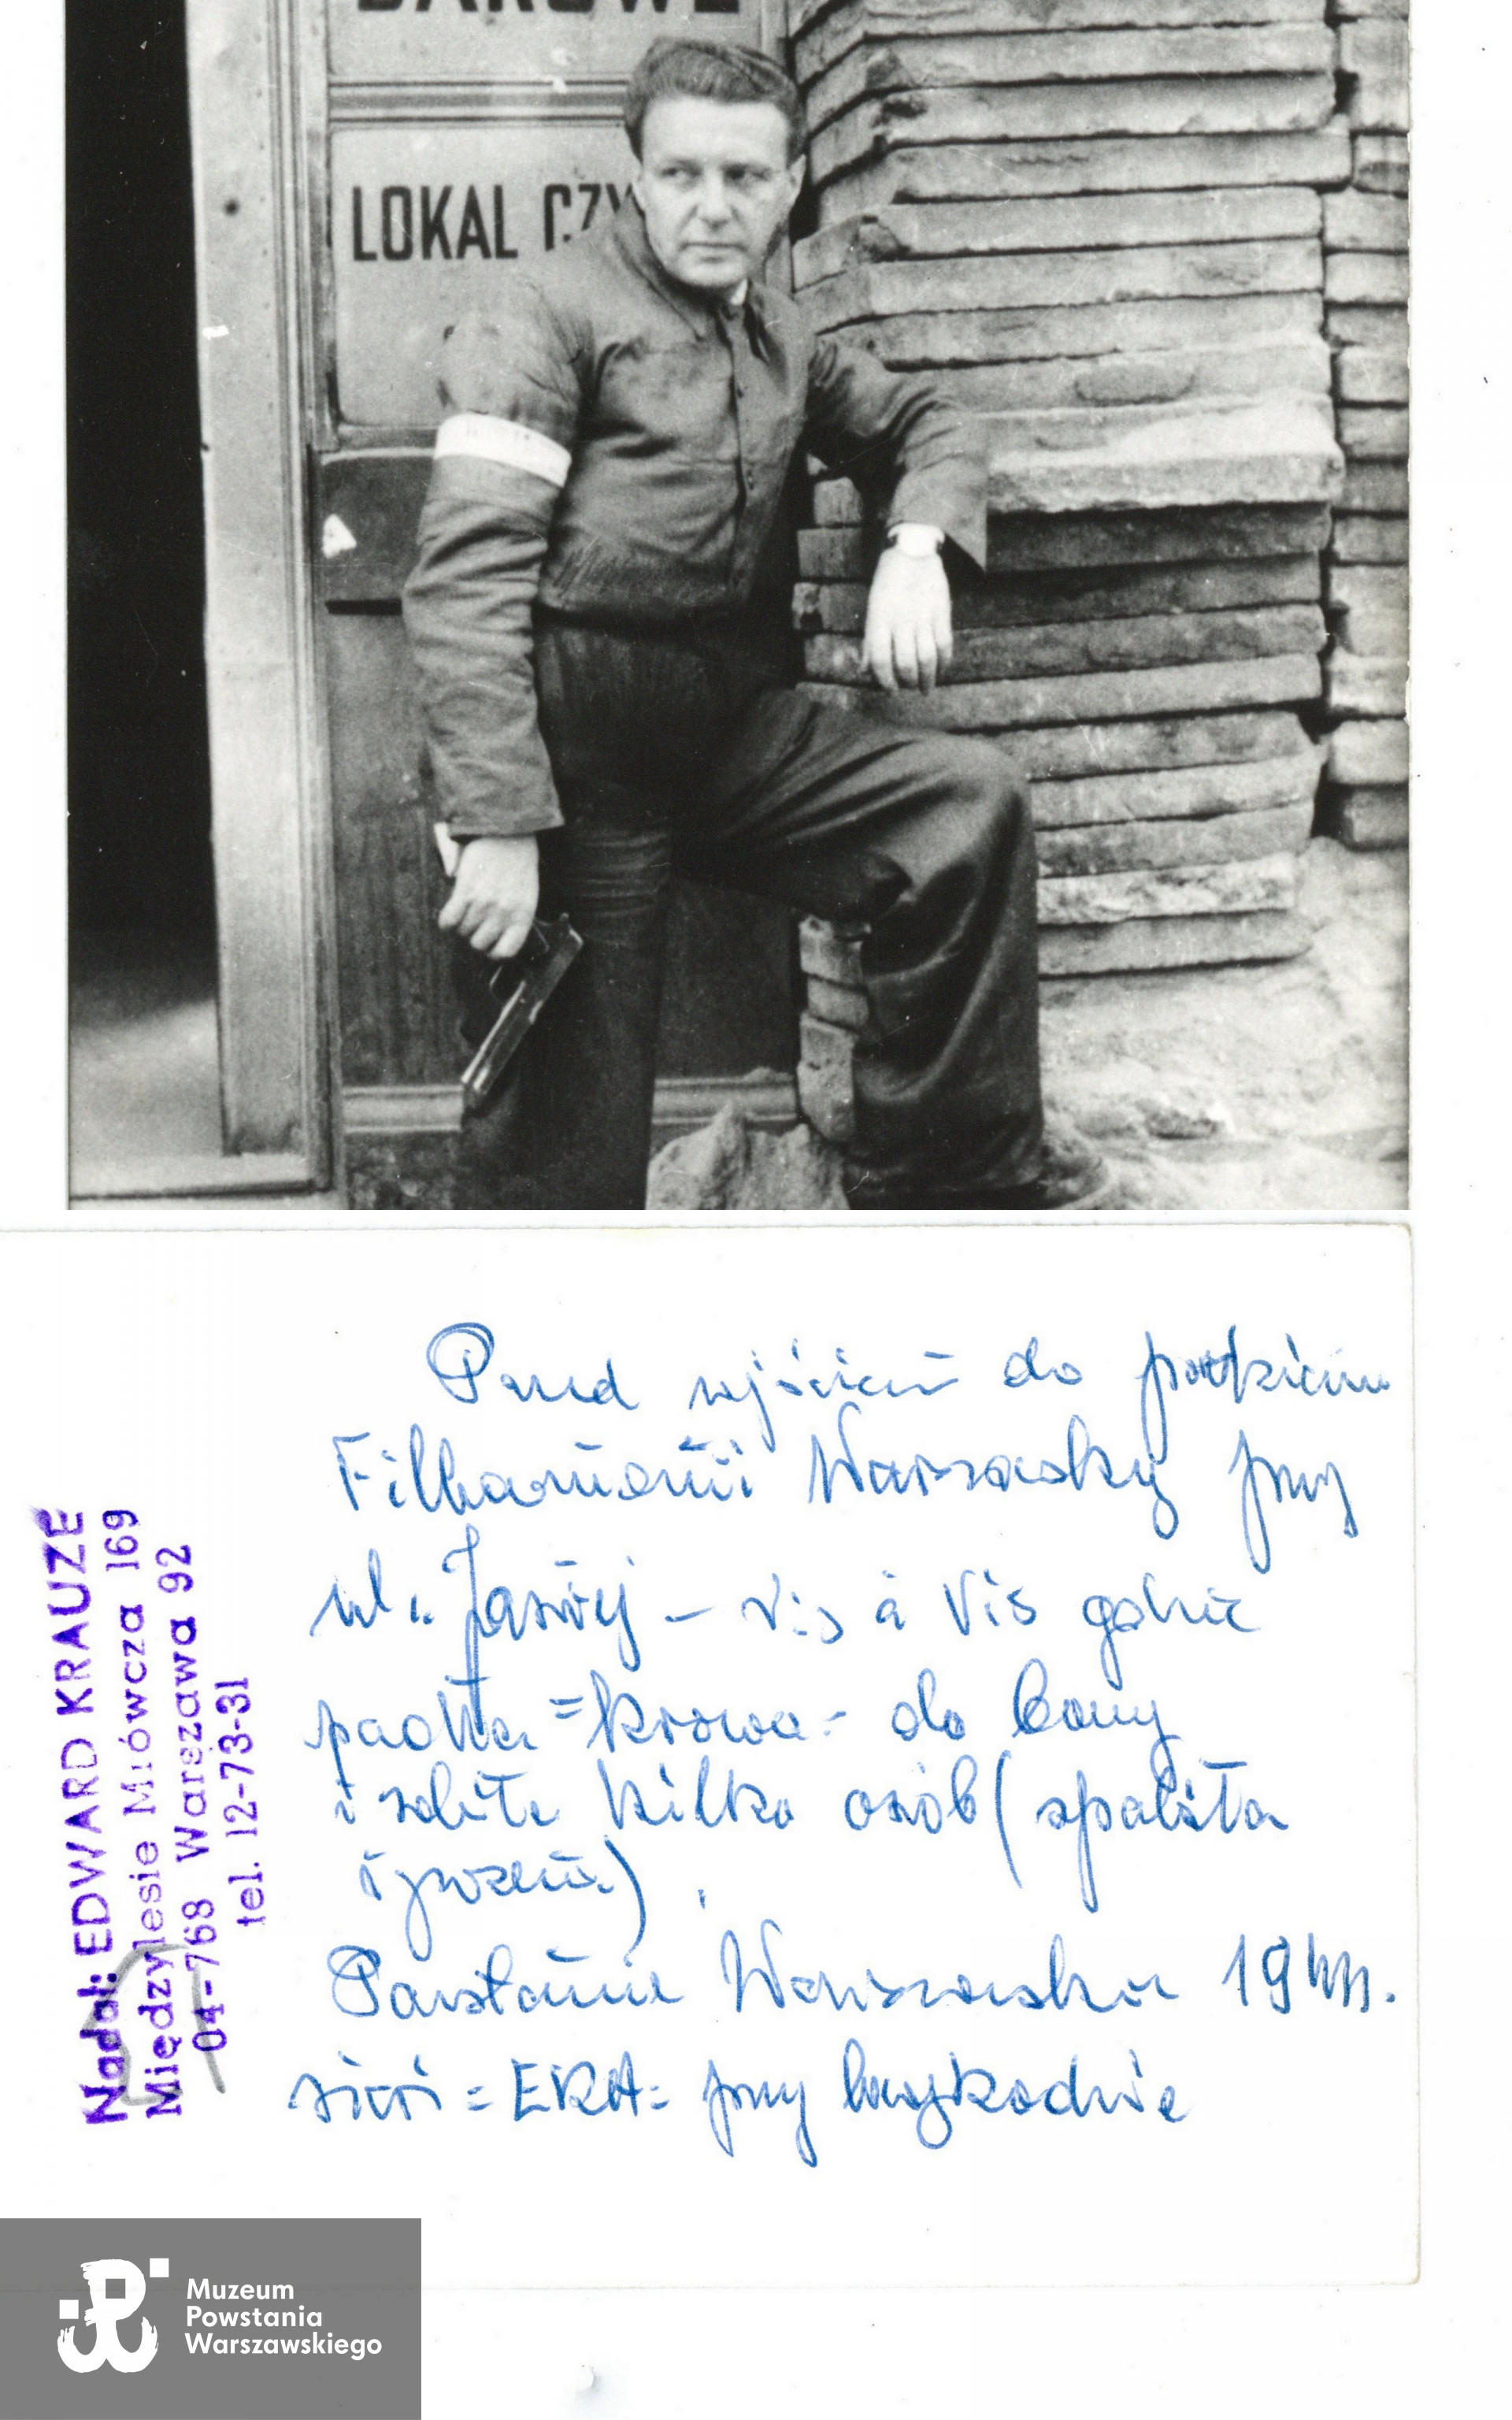 LOKAL CZY
Przed wejściem do
Filharmonii Warszawskiej przy
ul. Jasnej – vis à vis gdzie
padła =krowa= do bramy
i zabiła kilka osób (spaliła
żywcem).
Powstanie Warszawskie 1944r.
=ERA= przy
Nadał: EDWARD KRAUZE
Międzylesie Mrówcza 169
04-768 Warszawa 92
tel. 12-73-31
Muzeum
Powstania
Warszawskiego